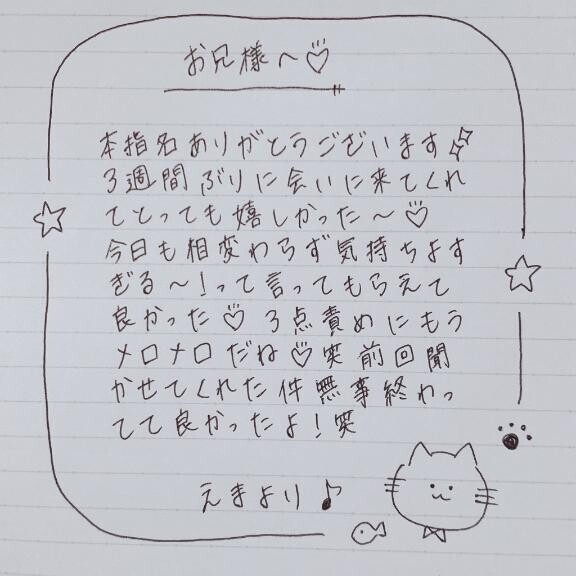 お兄様〜♡
本指名ありがとうございます
3週間ぶりに会いに来てくれ
てとっても嬉しかった〜♡
今日も相変わらず気持ちよす
ぎる〜!って言ってもらえて
良かった♡3点責めにもう
メロメロだね♡笑 前回聞
かせてくれた件無事終わっ
てて良かったよ!笑
えまより♪